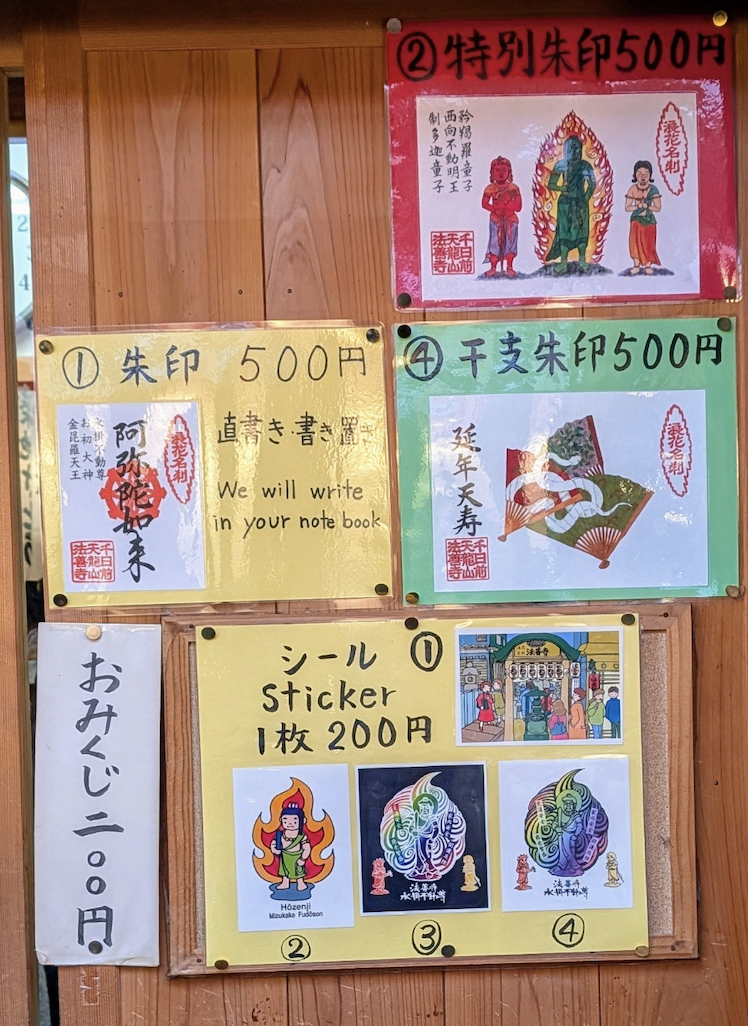 ②特別朱印500円
矜羯羅童子
西向不動明王
制多迦童子
浪花名刹
千日前
天龍山
法善寺
① 朱印 500円
水掛不動尊
お初大神
金毘羅天王
阿弥陀如来
浪花名刹
千日前
天龍山
法善寺
直書き・書き置き
We will write
in your note book
④干支朱印500円
延年天寿
浪花名刹
千日前
天龍山
法善寺
おみくじ二〇〇円
シール
Sticker
1枚 200円
①
法善寺
Hōzenji
Mizukake Fudōson
②
法善寺
水掛不動尊
③
法善寺
水掛不動尊
④